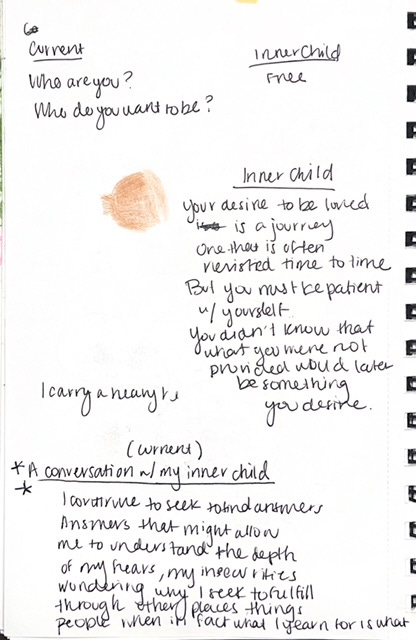 Current
Inner Child
Who are you?
Free
Who do you want to be?
Inner Child
your desire to be loved
is a journey
one that is often
revisited time to time
But you must be patient
w/ yourself.
you didn't know that
what you were not
provided would later
be something
you desire.
I carry a heavy
(current)
* A conversation w/ my inner child
*
I continue to seek to find answers
Answers that might allow
me to understand the depth
of my fears, my insecurities
wondering why I seek to fulfill
through other places things
people when in fact what I yearn for is what